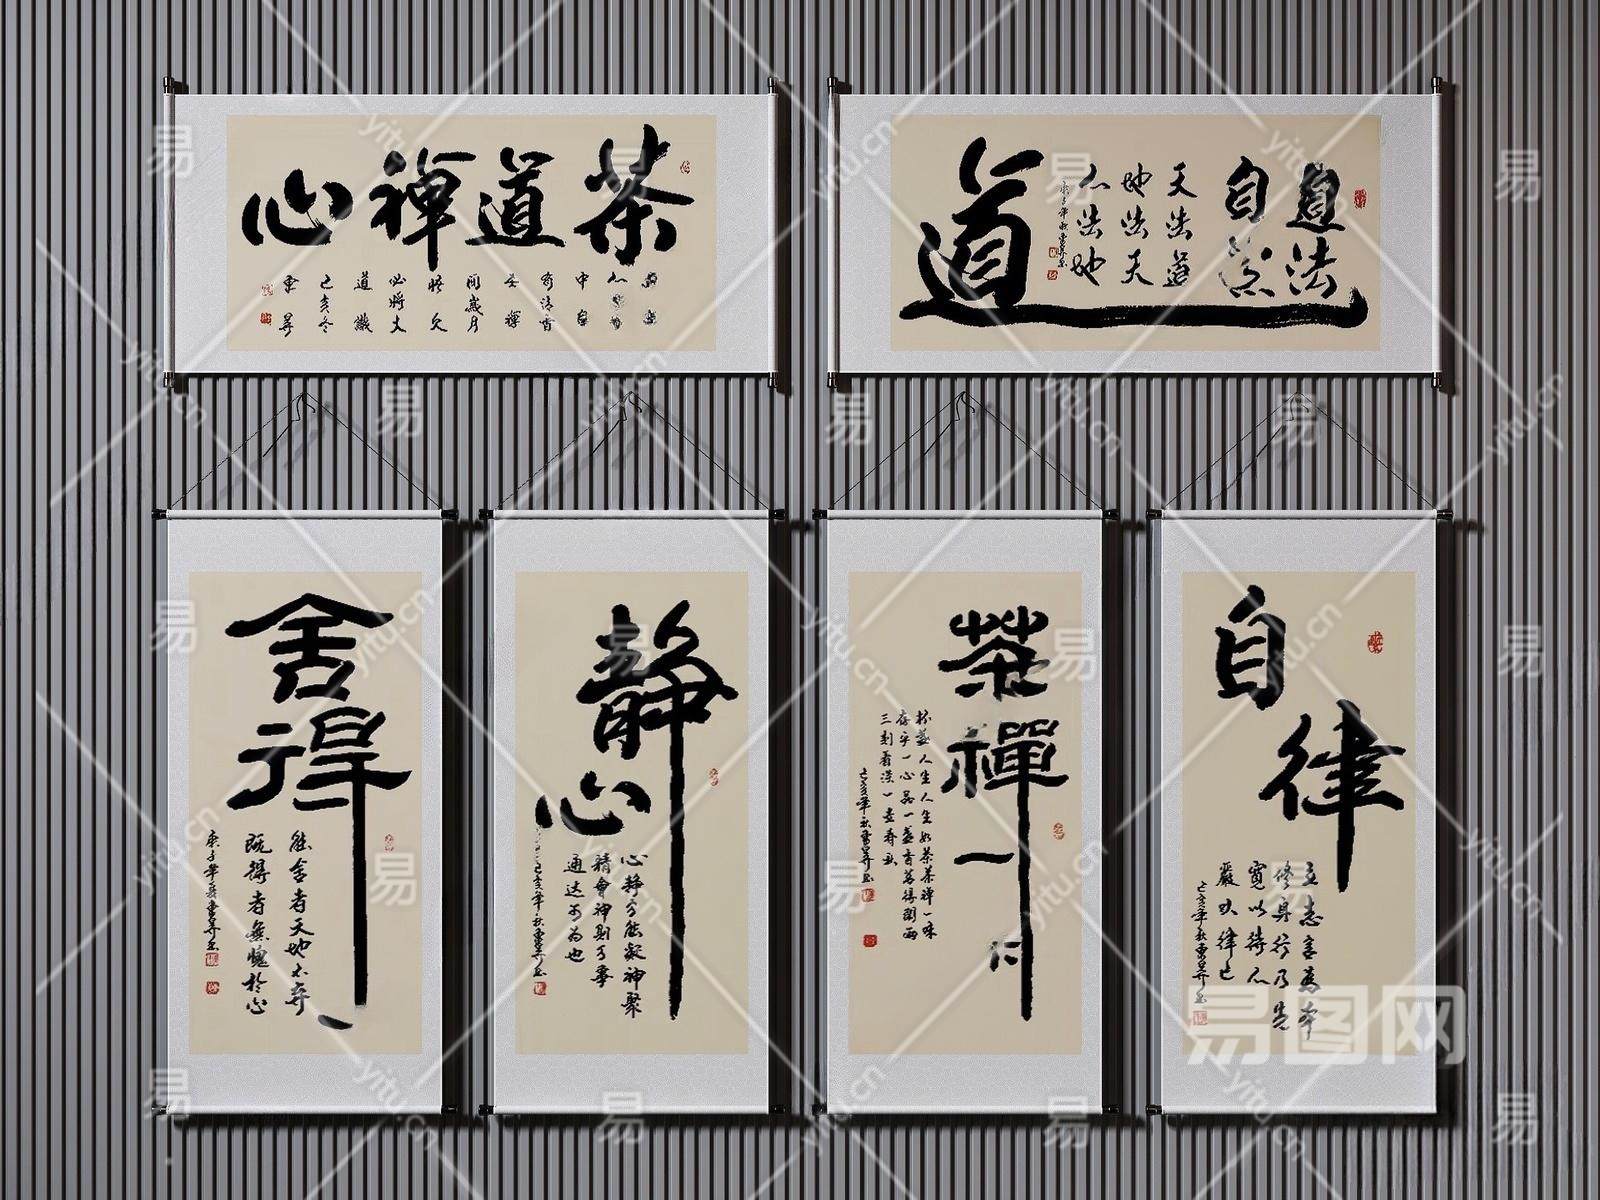 茶道禅心
中自
有清香
道法
自然
天法道
地法天
人法地
道
舍得
能舍者天地不弃
既得者無愧於心
靜心
心静方能凝神聚
精會神則万事
通达可為也
己亥年秋
茶禪一
人生人生如茶茶禅一味
存乎一心品一盏香茗得
三刻看淡一
己亥年秋
自律
立志言為本
修身行乃先
寬以待人
嚴以律己
己亥年秋
易图网
yitu.cn